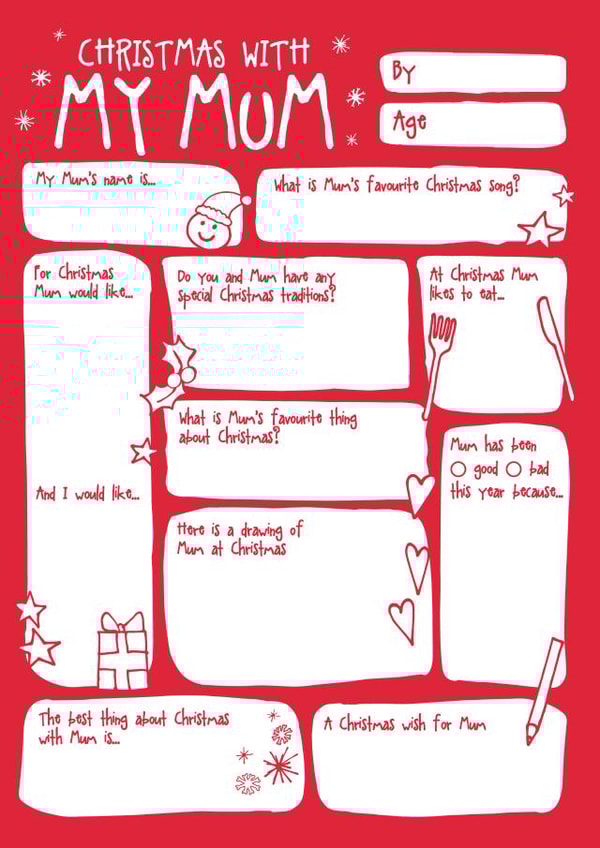 CHRISTMAS WITH
MY MUM
By
Age
My Mum's name is...
What is Mum's favourite Christmas song?
For Christmas
Mum would like...
Do you and Mum have any
special Christmas traditions?
At Christmas Mum
likes to eat...
What is Mum's favourite thing
about Christmas?
Mum has been
good bad
this year because...
And I would like...
Here is a drawing of
Mum at Christmas
The best thing about Christmas
with Mum is...
A Christmas wish for Mum